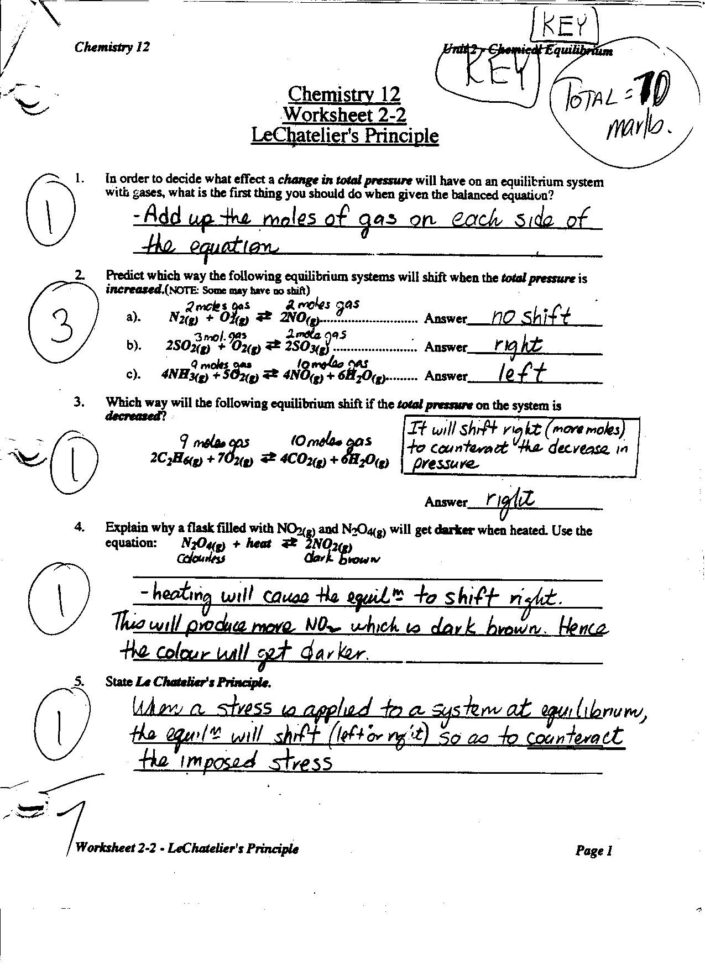 KEY
Chemistry 12
Unit 2 - Chemical Equilibrium
KEY
TOTAL = 70
marks.
Chemistry 12
Worksheet 2-2
LeChatelier's Principle
1. In order to decide what effect a change in total pressure will have on an equilibrium system
with gases, what is the first thing you should do when given the balanced equation?
1
-Add up the moles of gas on each side of
the equation
2. Predict which way the following equilibrium systems will shift when the total pressure is
increased.(NOTE: Some may have no shift)
3
2 moles gas 2 moles gas
a). N2(g) + O2(g) ⇄ 2NO(g)............................ Answer no shift
3 mol. gas 2 mole gas
b). 2SO2(g) + O2(g) ⇄ 2SO3(g) ........................ Answer right
9 moles gas 10 moles gas
c). 4NH3(g) + 5O2(g) ⇄ 4NO(g) + 6H2O(g)......... Answer left
3. Which way will the following equilibrium shift if the total pressure on the system is
decreased?
1
9 moles gas 10 moles gas
2C2H6(g) + 7O2(g) ⇄ 4CO2(g) + 6H2O(g)
It will shift right (more moles)
to counteract the decrease in
pressure
Answer right
4. Explain why a flask filled with NO2(g) and N2O4(g) will get darker when heated. Use the
equation: N2O4(g) + heat ⇄ 2NO2(g)
colourless dark brown
1
-heating will cause the equilm to shift right.
This will produce more NO2 which is dark brown. Hence
the colour will get darker.
5. State Le Chatelier's Principle.
1
When a stress is applied to a system at equilibrium,
the equilm will shift (left or right) so as to counteract
the imposed stress
7
Worksheet 2-2 - LeChatelier's Principle
Page 1